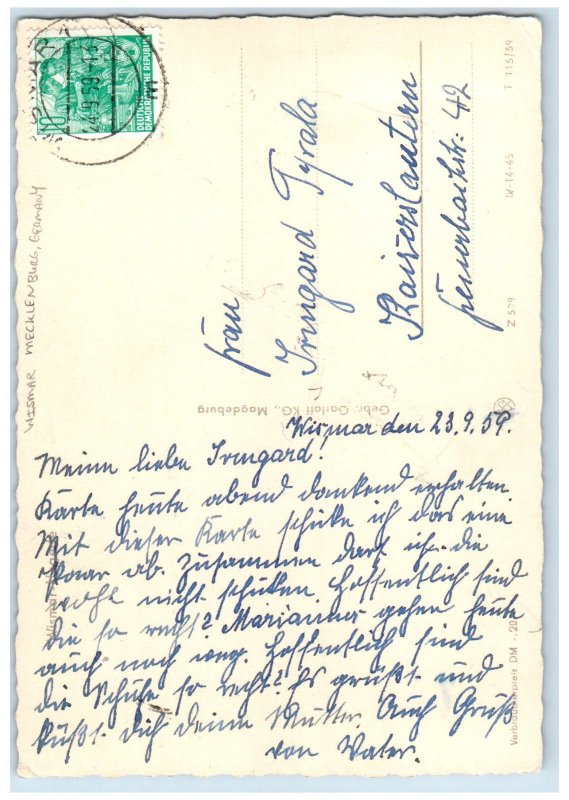 DEUTSCHE
DEMOKRATISCHE REPUBLIK
10
24.9.59
WISMAR MECKLENBURG, GERMANY
Frau
Irmgard Tyrala
Kaiserslautern
Feuerbachstr. 42
T 115/59
IV-14-45
Z 529
Gebr. Garloff KG., Magdeburg
Wismar den 23.9.59.
Meine liebe Irmgard!
Karte heute abend dankend erhalten
Mit dieser Karte schicke ich das eine
Paar ab. Zusammen darf ich die
wohl nicht schicken. Hoffentlich sind
die so recht? Mariannes gehen heute
auch noch weg. Hoffentlich sind
die Schuhe so recht? Es grüßt und
küßt dich deine Mutter. Auch Gruß
von Vater.
Verbraucherpreis DM -,20